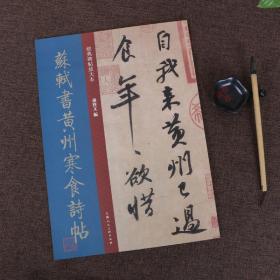 經典碑帖放大本
蘇軾書黄州寒食詩帖
自我来黄州已過
食年〻欲惜